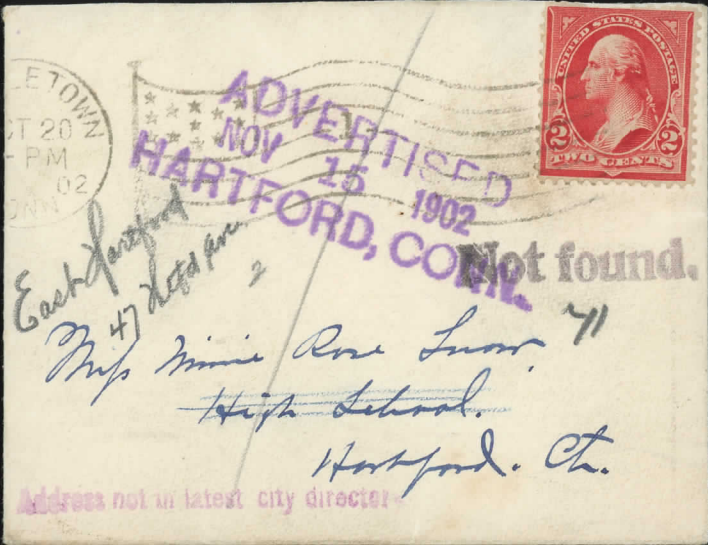 LETOWN
CT 20
- PM
02
ONN
UNITED STATES POSTAGE
2 2
TWO CENTS
ADVERTISED
NOV 15 1902
HARTFORD, CONN.
Not found.
East Hartford
47 Htfd Ave
2
71
Miss Minnie Rose Snow
High School.
Hartford. Ct.
Address not in latest city director